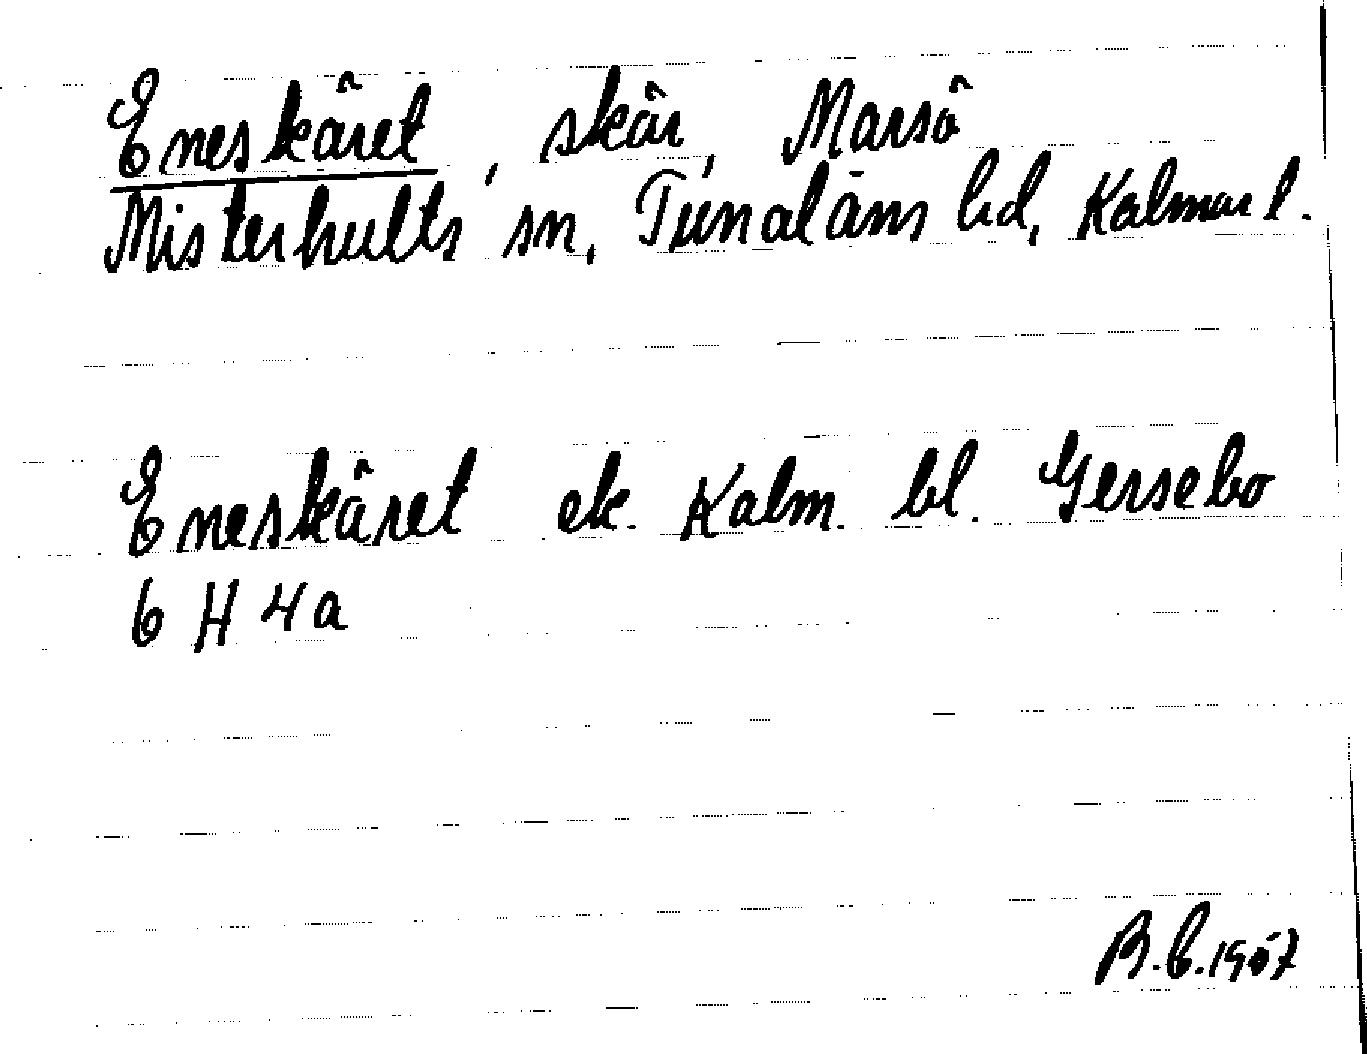 Eneskäret, skär, Marsö
Misterhults sn, Tunaläns hd, Kalmar l.
Eneskäret ek. Kalm. bl. Gersebo
6 H 4a